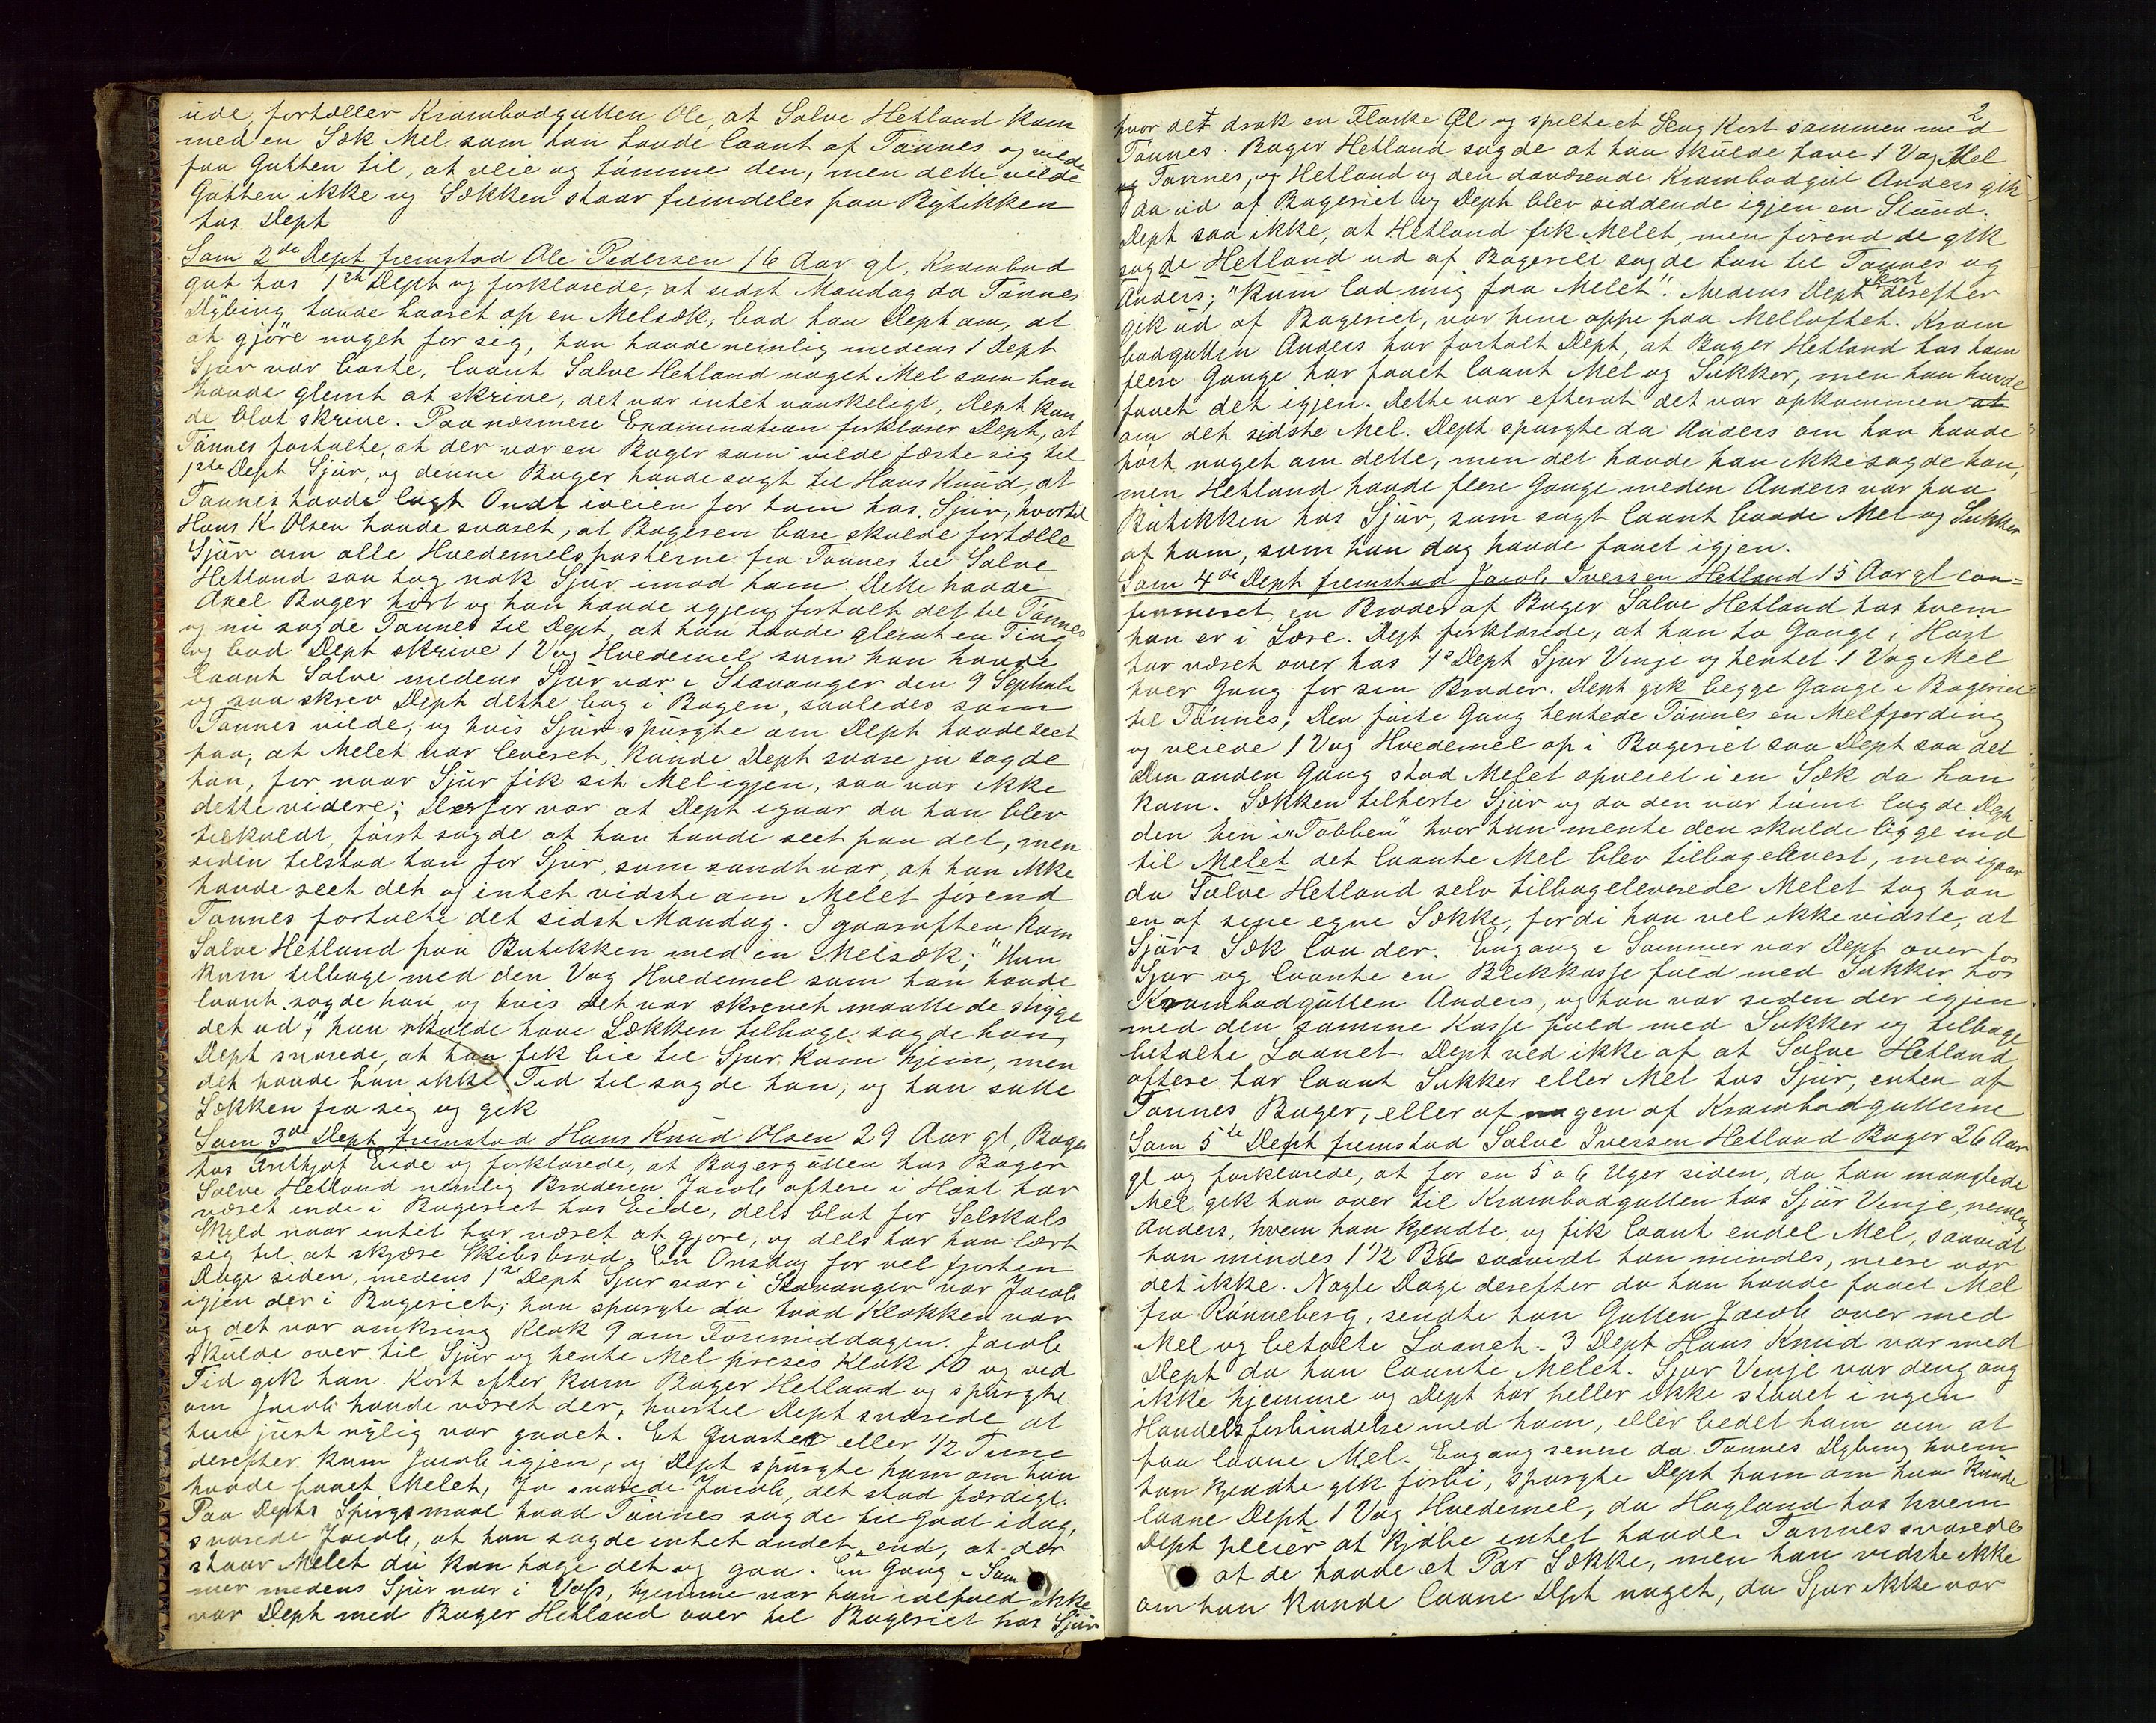 ude, fortæller Krambodgutten Ole, at Salve Hetland kom
med en Sæk Mel som han havde laant af Tønnes og vilde
faa Gutten til, at veie og tømme den, men dette vilde
Gutten ikke og Sækken staar fremdeles paa Butikken
hos Dept
Som 2den Dept fremstod Ole Pedersen 16 Aar gl, Krambod
gut hos 1ste Dept og forklarede, at sidst Mandag da Tønnes
Dybing havde baaret op en Melsæk, bad han Dept om, at
at gjøre noget for sig, han havde nemlig medens 1 Dept
Sjur var borte, laant Salve Hetland noget Mel som han
havde glemt at skrive, det var intet vanskeligt, Dept kun
de blot skrive. Paa nærmere Examination forklarer Dept, at
Tønnes fortalte, at der var en Bager som vilde fæste sig til
1ste Dept Sjur, og denne Bager havde sagt til Hans Knud, at
Tønnes havde lagt Ondt iveien for ham hos Sjur, hvortil
Hans K Olsen havde svaret, at Bageren bare skulde fortælle
Sjur om alle Hvedemelsposterne fra Tønnes til Salve
Hetland saa tog nok Sjur imod ham. Dette havde
Axel Bager hørt og han havde igjen fortalt det til Tønnes
og nu sagde Tønnes til Dept, at han havde glemt en Ting
og bad Dept skrive 1 Vog Hvedemel som han havde
laant Salve medens Sjur var i Stavanger den 9 Septmb
og saa skrev Dept dette bag i Bogen, saaledes som
Tønnes vilde, og hvis Sjur spurgte om Dept havde seet
paa, at Melet var leveret, kunde Dept svare ja sagde
han, for naar Sjur fik sit Mel igjen, saa var ikke
dette videre; Derfor var at Dept igaar da han blev
tilkaldt, først sagde at han havde seet paa det, men
siden tilstod han for Sjur, som sandt var, at han ikke
havde seet det og intet vidste om Melet førend
Tønnes fortalte det sidst Mandag. I gaaraften kom
Salve Hetland paa Butikken med en Melsæk; "Han
kom tilbage med den Vog Hvedemel som han havde
laant, sagde han, og hvis det var skrevet maatte de stryge
det ud", han skulde have Sækken tilbage sagde han,
Dept svarede, at han fik bie til Sjur kom hjem, men
det havde han ikke Tid til sagde han, og han satte
Sækken fra sig og gik
Som 3de Dept fremstod Hans Knud Olsen 29 Aar gl, Bager
hos Enthjof Eide og forklarede, at Bagergutten hos Bager
Salve Hetland nemlig Broderen Jacob oftere i Høst har
været inde i Bageriet hos Eide, dels blot for Selskabs
Skyld naar intet har været at gjøre, og dels har han lært
sig til at skjære Skibsbrød. En Onsdag for vel fjorten
Dage siden, medens 1ste Dept Sjur var i Stavanger var Jacob
igjen der i Bageriet; han spurgte da hvad Klokken var
og det var omkring Klok 9 om Formiddagen. Jacob
skulde over til Sjur og hente Mel præses Klok 10 og ved
Tid gik han. Kort efter kom Bager Hetland og spurgte
om Jacob havde været der, hvortil Dept svarede at
han just nylig var gaaet. Et Qvarter eller 1/2 Time
derefter kom Jacob igjen, og Dept spurgte ham om han
havde faaet Melet, Ja svarede Jacob, det stod færdigt.
Paa Depts Spørgsmaal hvad Tønnes sagde til Godt idag,
svarede Jacob, at han sagde intet andet end, at der
staar Melet du kan tage det og gaa. En Gang i Som
mer medens Sjur var i Voss, hjemme var han ialfald ikke
var Dept med Bager Hetland over til Bageriet hos Sjur
2
hvor det drak en Flaske Øl og spilte et Slag Kort sammen med
Tønnes. Bager Hetland sagde at han skulde have 1 Vog Mel
og Tønnes, og Hetland og den daværende Krambodgut Anders gik
da ud af Bageriet og Dept blev siddende igjen en Stund.
Dept saa ikke, at Hetland fik Melet, men førend de gik
sagde Hetland ud af Bageriet sagde han til Tønnes og
Anders; "Kom lad mig faa Melet". Medens Dept kort derefter
gik ud af Bageriet, var hine oppe paa Melloftet. Kram
bodgutten Anders har fortalt Dept, at Bager Hetland hos ham
flere Gange har faaet laant Mel og Sukker, men han havde
faaet det igjen. Dette var efterat det var opkommen at
om det sidste Mel. Dept spurgte da Anders om han havde
hørt noget om dette, men det havde han ikke sagde han,
men Hetland havde flere Gange meden Anders var paa
Butikken hos Sjur, som sagt laant baade Mel og Sukker
af ham, som han dog havde faaet igjen.
Som 4de Dept fremstod Jacob Iversen Hetland 15 Aar gl con-
firmeret en Broder af Bager Salve Hetland hos hvem
han er i Lære. Dept forklarede, at han to Gange i Høst
har været over hos 1s Dept Sjur Vinje og hentet 1 Vog Mel
hver Gang for sin Broder. Dept gik begge Gange i Bageriet
til Tønnes; Den første Gang hentede Tønnes en Melfjerding
og veiede 1 Vog Hvedemel op i Bageriet saa Dept saa det
Den anden Gang stod Melet opveiet i en Sæk da han
kom. Sækken tilhørte Sjur og da den var tømt lagde Dept
den hen i "Tobben" hvor han mente den skulde ligge ind
til Melet det laante Mel blev tilbageleveret, men igaar
da Salve Hetland selv tilbageleverede Melet tog han
en af sine egne Sække, fordi han vel ikke vidste, at
Sjurs Sæk laa der. Engang i Sommer var Dept over hos
Sjur og laante en Blikkasse fuld med Sukker hos
Krambodgutten Anders, og han var siden der igjen
med den samme Kasse fuld med Sukker og tilbage
betalte Laanet. Dept ved ikke af at Salve Hetland
oftere har laant Sukker eller Mel hos Sjur, enten af
Tønnes Bager, eller af nogen af Krambodgutterne
Som 5te Dept fremstod Salve Iversen Hetland Bager 26 Aar
gl og forklarede, at for en 5 a 6 Uger siden, da han manglede
Mel gik han over til Krambodgutten hos Sjur Vinje, nemlig
Anders, hvem han kjendte, og fik laant endel Mel, saavidt
han mindes 1 1/2 saavidt han mindes, mere var
det ikke. Nogle Dage derefter da han havde faaet Mel
fra Rønneberg, sendte han Gutten Jacob over med
Mel og betalte Laanet. 3 Dept Hans Knud var med
Dept da han laante Melet. Sjur Vinje var dengang
ikke hjemme og Dept har heller ikke staaet i ngen
Handelsforbindelse med ham, eller bedet ham om at
faa laane Mel. Engang senere da Tønnes Dybing hvem
han kjendte gik forbi, spurgte Dept ham om han kunde
laane Dept 1 Vog Hvedemel, da Hagland hos hvem
Dept pleier at kjøbe intet havde. Tønnes svarede
at de havde et Par Sække, men han vidste ikke
om han kunde laane Dept noget, da Sjur ikke var